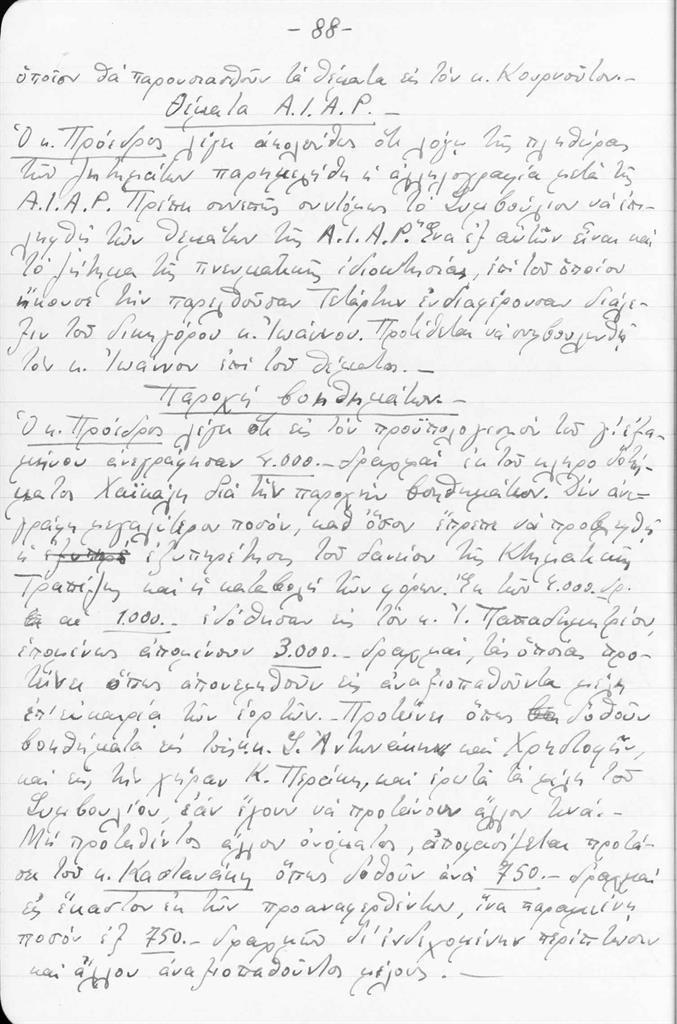 - 88 -
ὁποῖον θά παρουσιασθοῦν τά θέματα εἰς τόν κ. Κουρνοῦτον.-
Θέματα A.I.A.P.-
Ὁ κ. Πρόεδρος λέγει ἀκολούθως ὅτι λόγῳ τῆς πληθώρας
τῶν ζητημάτων παρημελήθη ἡ ἀλληλογραφία μετά τῆς
A.I.A.P. Πρέπει συνεπῶς συντόμως τό Συμβούλιον νά ἐπι-
ληφθῇ τῶν θεμάτων τῆς A.I.A.P. Ἕνα ἐξ αὐτῶν εἶναι καί
τό ζήτημα τῆς πνευματικῆς ἰδιοκτησίας, ἐπί τοῦ ὁποίου
ἤκουσε τήν παρελθοῦσαν Τετάρτην ἐνδιαφέρουσαν διάλε-
ξιν τοῦ δικηγόρου κ. Ἰωάννου. Προτίθεται νά συμβουλευθῇ
τόν κ. Ἰωάννου ἐπί τοῦ θέματος.-
Παροχή βοηθημάτων.-
Ὁ κ. Πρόεδρος λέγει ὅτι εἰς τόν προϋπολογισμόν τοῦ γ' ἑξα-
μήνου ἀνεγράφησαν 4.000.- δραχμαί ἐκ τοῦ κληροδοτή-
ματος Χαϊκάλη διά τήν παροχήν βοηθημάτων. Δέν ἀνε-
γράφη μεγαλύτερον ποσόν, καθ' ὅσον ἔπρεπε νά προβλεφθῇ
ἡ ἐξυπηρέτησις τοῦ δανείου τῆς Κτηματικῆς
Τραπέζης καί ἡ καταβολή τῶν φόρων. Ἐκ τῶν 4.000.- δρ.
αἱ 1.000.- ἐδόθησαν εἰς τόν κ. Ἰ. Παπαδημητρίου,
ἑπομένως ἀπομένουν 3.000.- δραχμαί, τάς ὁποίας προ-
τείνει ὅπως ἀπονεμηθοῦν εἰς ἀναξιοπαθοῦντα μέλη
ἐπ' εὐκαιρίᾳ τῶν ἑορτῶν.- Προτείνει ὅπως δοθοῦν
βοηθήματα εἰς τούς κ.κ. Ἀντωνάκην καί Χρηστοφῆν,
καί εἰς τήν χήραν Κ. Περάκη, καί ἐρωτᾷ τά μέλη τοῦ
Συμβουλίου, ἐάν ἔχουν νά προτείνουν ἄλλον τινά.-
Μή προταθέντος ἄλλου ὀνόματος, ἀποφασίζεται προτά-
σει τοῦ κ. Καστανάκη ὅπως δοθοῦν ἀνά 750.- δραχμαί
εἰς ἕκαστον ἐκ τῶν προαναφερθέντων, ἵνα παραμείνῃ
ποσόν ἐξ 750.- δραχμῶν δι' ἐνδεχομένην περίπτωσιν
καί ἄλλου ἀναξιοπαθοῦντος μέλους.-